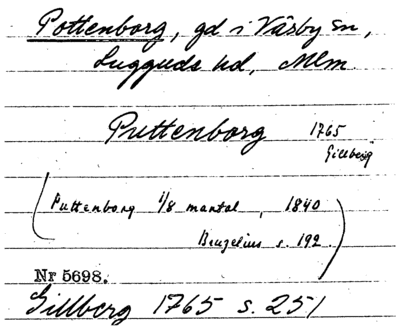 Pottenborg, gd i Väsby sn,
Luggude hd, Mlm
Puttenborg 1765
Gillberg
(Puttenborg 1/8 mantal, 1840
Bruzelius s. 192.)
Nr 5698.
Gillberg 1765 s. 251